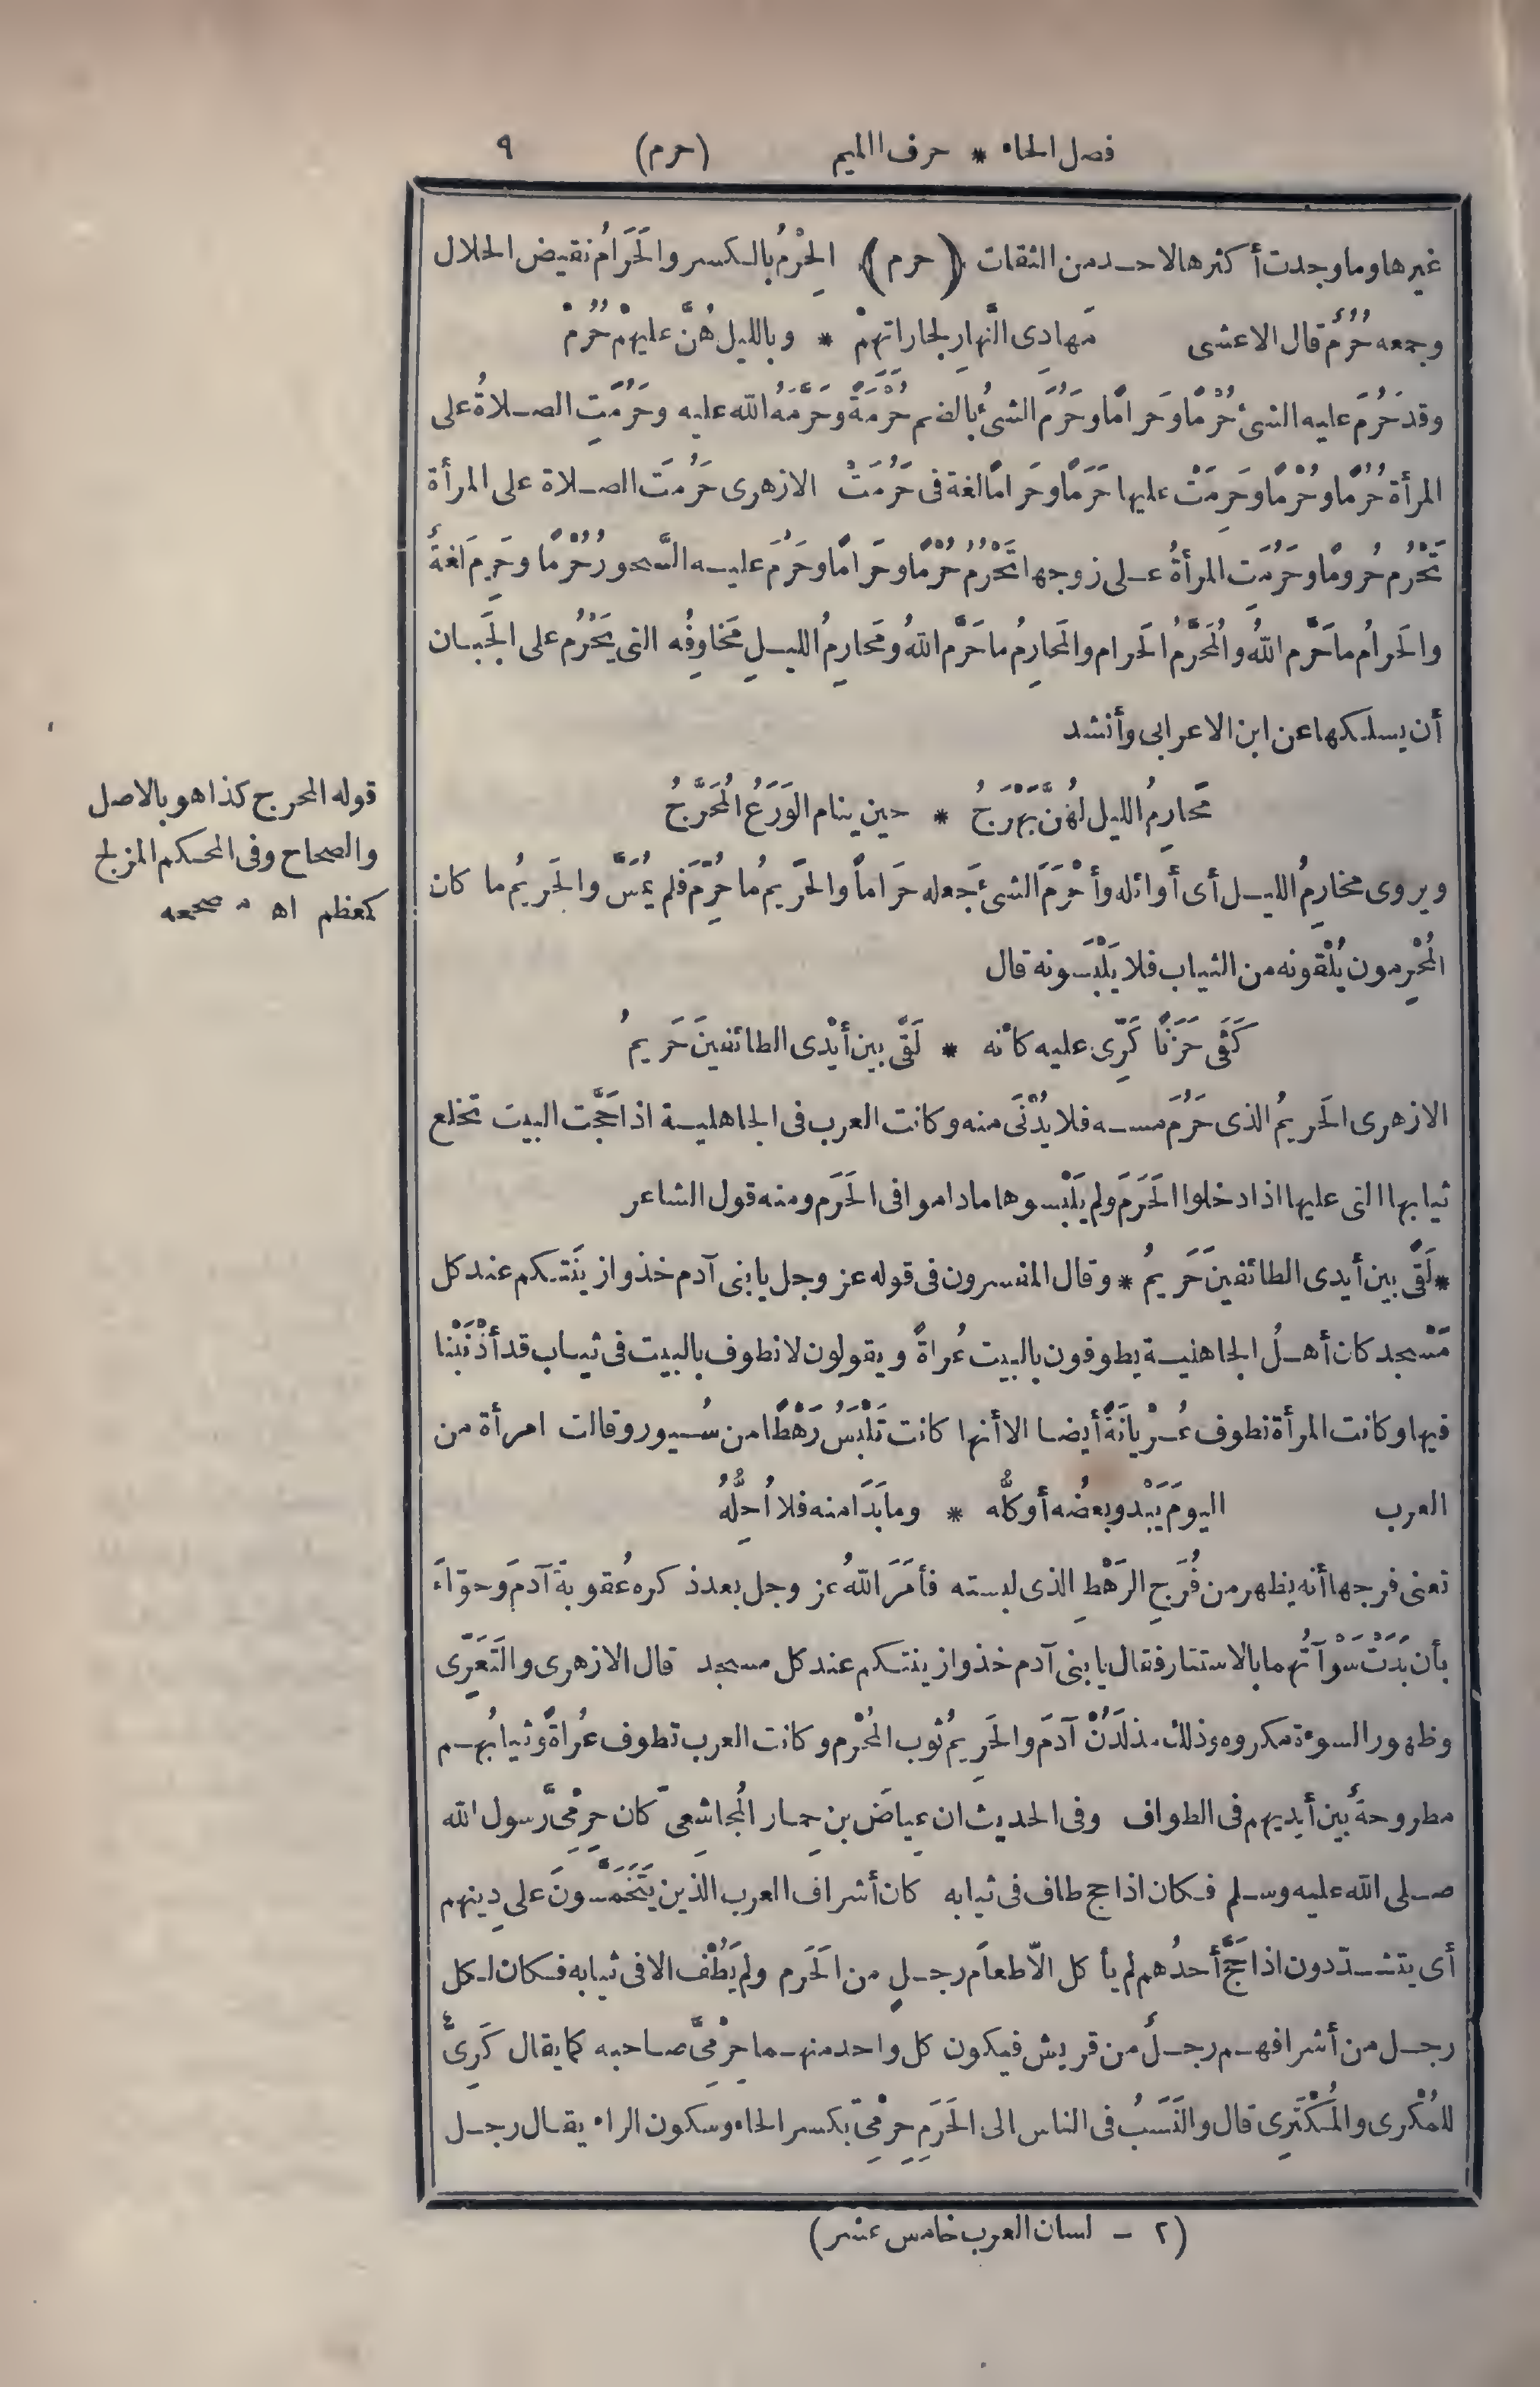 فصل الحاء * حرف الميم (حرم) ٩
غيرها وما وجدت أكثرها لاحد من الثقات (حرم) الحِرْمُ بالكسر والحَرامُ نقيض الحلال
وجمعه حُرُمٌ قال الاعشى مَهادِى النَّهارِ لجاراتهِمْ * وبالليل هُنَّ عليهمْ حُرُمْ
وقد حَرُمَ عليه الشئ حُرْمًا وحَرامًا وحَرُمَ الشئُ بالضم حُرْمَةً وحَرَّمَهُ الله عليه وحَرُمَتِ الصلاةُ على
المرأة حُرُمًا وحُرْمًا وحَرِمَتْ عليها حَرَمًا وحَرامًا لغة فى حَرُمَتْ الازهرى حَرُمَت الصلاة على المرأة
تَحْرُم حُرومًا وحَرُمَتِ المرأةُ على زوجها تَحْرُمُ حُرْمًا وحَرامًا وحَرُمَ عليه السَّحورُ حُرْمًا وحَرِمَ لغةٌ
والحَرامُ ما حَرَّم اللهُ والمُحَرَّمُ الحَرام والمَحارِمُ ما حَرَّم اللهُ ومَحارِمُ الليلِ مَخاوِفُه التى يَحْرُم على الجَبان
أن يسلكها عن ابن الاعرابى وأنشد
مَحارِمُ الليل لهُنَّ بَهْرَجُ * حين ينام الوَرَعُ المُحَرَّجُ
قوله المحرج كذا هو بالاصل
والصحاح وفى المحكم المزلج
كمعظم اه مصححه
ويروى مخارِمُ الليل أى أوائله وأحْرَمَ الشئَ جَعله حَراماً والحَرِيمُ ما حُرِّمَ فلم يُمَسَّ والحَرِيمُ ما كان
المُحْرِمون يُلْقونه من الثياب فلا يَلْبَسونه قال
كَفَى حَزَنًا كَرِّى عليه كانه * لَقًى بين أَيْدى الطائفينَ حَرِيمُ
الازهرى الحَرِيمُ الذى حَرُمَ مسه فلا يُدْنَى منه وكانت العرب فى الجاهلية اذا حَجَّت البيت تخلع
ثيابها التى عليها اذا دخلوا الحَرَمَ ولم يَلْبَسوها ما داموا فى الحَرَم ومنه قول الشاعر
*لَقًى بين أيدى الطائفينَ حَرِيمُ * وقال المفسرون فى قوله عز وجل يابنى آدم خذوا زينَتكم عند كل
مَسْجد كان أهلُ الجاهلية يطوفون بالبيت عُراةً ويقولون لا نطوف بالبيت فى ثياب قد أذْنَبْنا
فيها وكانت المرأة تطوف عُرْيانَةً أيضا الا أنها كانت تَلْبَسُ رَهْطًا من سُيور وقالت امرأة من
العرب اليومَ يَبْدو بعضُه أو كلُّه * وما بَدَا منه فلا اُحِلُّهُ
تعنى فرجها أنه يظهر من فُرَجِ الرَهْطِ الذى لبسته فأمَرَ اللهُ عز وجل بعد ذكره عُقوبةَ آدمَ وحوّاءَ
بأن بَدَتْ سَوْآتُهما بالاستتار فقال يابنى آدم خذوا زينتكم عند كل مسجد قال الازهرى والتَعَرِّى
وظهور السوءة مكروه وذلك مذ لَدُنْ آدَمَ والحَرِيمُ ثوب المُحْرم وكانت العرب تطوف عُراةً وثيابُهم
مطروحةٌ بين أيديهم فى الطواف وفى الحديث ان عِياضَ بن حِمار المُجاشِعىّ كان حِرْمِىَّ رسول الله
صلى الله عليه وسلم فكان اذا حج طاف فى ثيابه كان أشراف العرب الذين يَتَحَمَّسونَ على دِينهم
أى يتشدّدون اذا حَجَّ أحدُهم لم يأكل الّا طعامَ رجلٍ من الحَرَم ولم يَطُفْ الا فى ثيابه فكان لكل
رجل من أشرافهم رجلٌ من قريش فيكون كل واحد منهما حِرْمِىَّ صاحبه كما يقال كَرِىٌّ
للمُكْرى والمُكْتَرِى قال والنَسَبُ فى الناس الى الحَرَمِ حِرْمِىّ بكسر الحاء وسكون الراء يقال رجل
(٢ - لسان العرب خامس عشر)